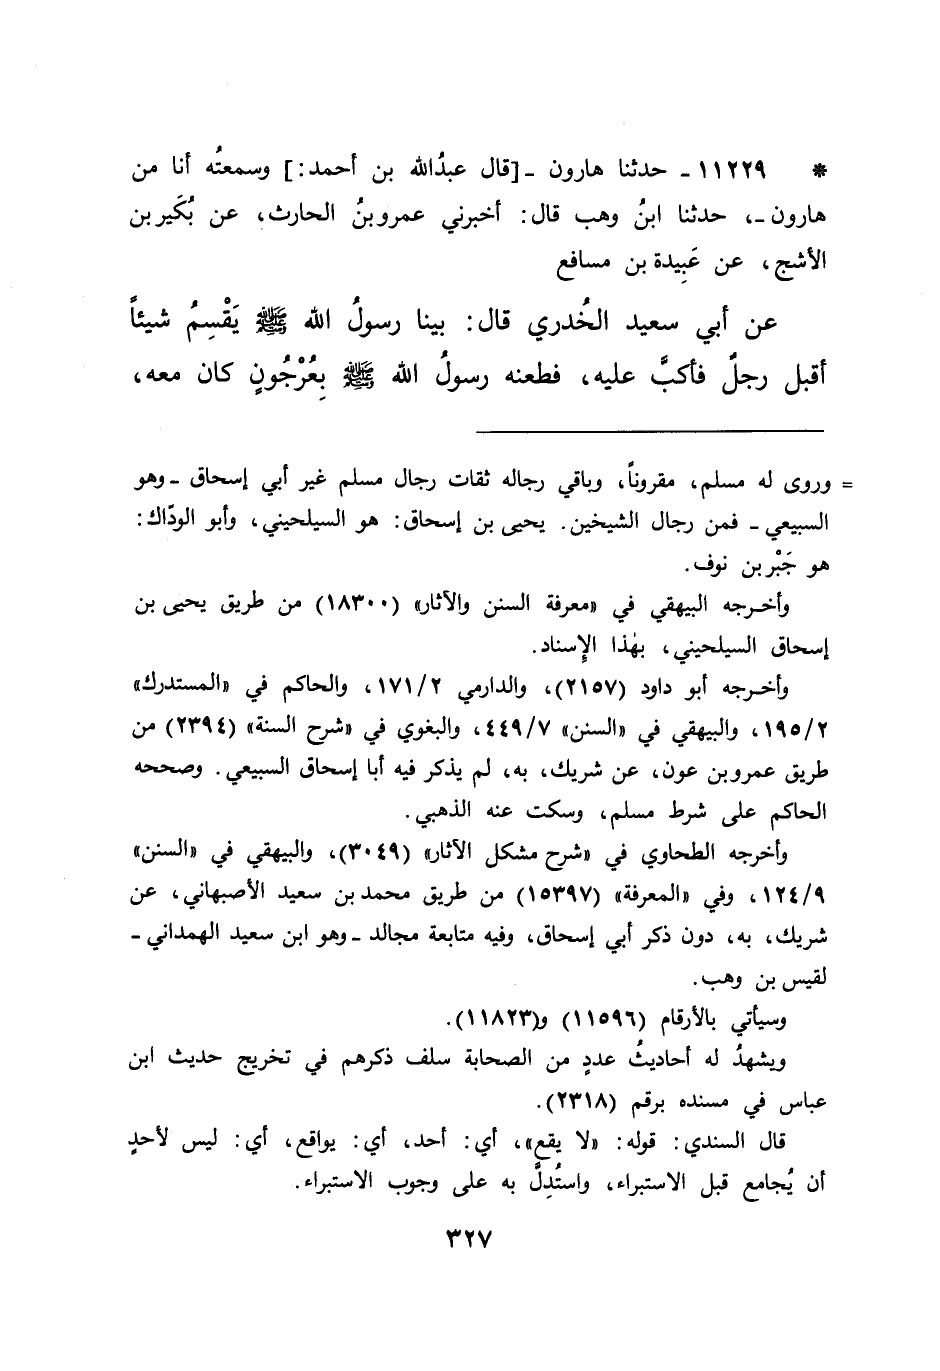 * ١١٢٢٩ ـ حدثنا هارون ـ [قال عبدُالله بن أحمد:] وسمعتُه أنا من
هارون ـ، حدثنا ابنُ وهب قال: أخبرني عمرو بنُ الحارث، عن بُكَير بن
الأشج، عن عَبِيدة بن مسافع
عن أبي سعيد الخُدري قال: بينا رسولُ الله ﷺ يَقْسِمُ شيئاً
أقبل رجلٌ فأكبَّ عليه، فطعنه رسولُ الله ﷺ بِعُرْجُونٍ كان معه،
= وروى له مسلم، مقروناً، وباقي رجاله ثقات رجال مسلم غير أبي إسحاق ـ وهو
السبيعي ـ فمن رجال الشيخين. يحيى بن إسحاق: هو السيلحيني، وأبو الودّاك:
هو جَبْر بن نوف.
وأخرجه البيهقي في «معرفة السنن والآثار» (١٨٣٠٠) من طريق يحيى بن
إسحاق السيلحيني، بهٰذا الإِسناد.
وأخرجه أبو داود (٢١٥٧)، والدارمي ١٧١/٢، والحاكم في «المستدرك»
١٩٥/٢، والبيهقي في «السنن» ٤٤٩/٧، والبغوي في «شرح السنة» (٢٣٩٤) من
طريق عمرو بن عون، عن شريك، به، لم يذكر فيه أبا إسحاق السبيعي. وصححه
الحاكم على شرط مسلم، وسكت عنه الذهبي.
وأخرجه الطحاوي في «شرح مشكل الآثار» (٣٠٤٩)، والبيهقي في «السنن»
١٢٤/٩، وفي «المعرفة» (١٥٣٩٧) من طريق محمد بن سعيد الأصبهاني، عن
شريك، به، دون ذكر أبي إسحاق، وفيه متابعة مجالد ـ وهو ابن سعيد الهمداني ـ
لقيس بن وهب.
وسيأتي بالأرقام (١١٥٩٦) و(١١٨٢٣).
ويشهدُ له أحاديثُ عددٍ من الصحابة سلف ذكرهم في تخريج حديث ابن
عباس في مسنده برقم (٢٣١٨).
قال السندي: قوله: «لا يقع»، أي: أحد، أي: يواقع، أي: ليس لأحدٍ
أن يُجامع قبل الاستبراء، واستُدِلَّ به على وجوب الاستبراء.
٣٢٧